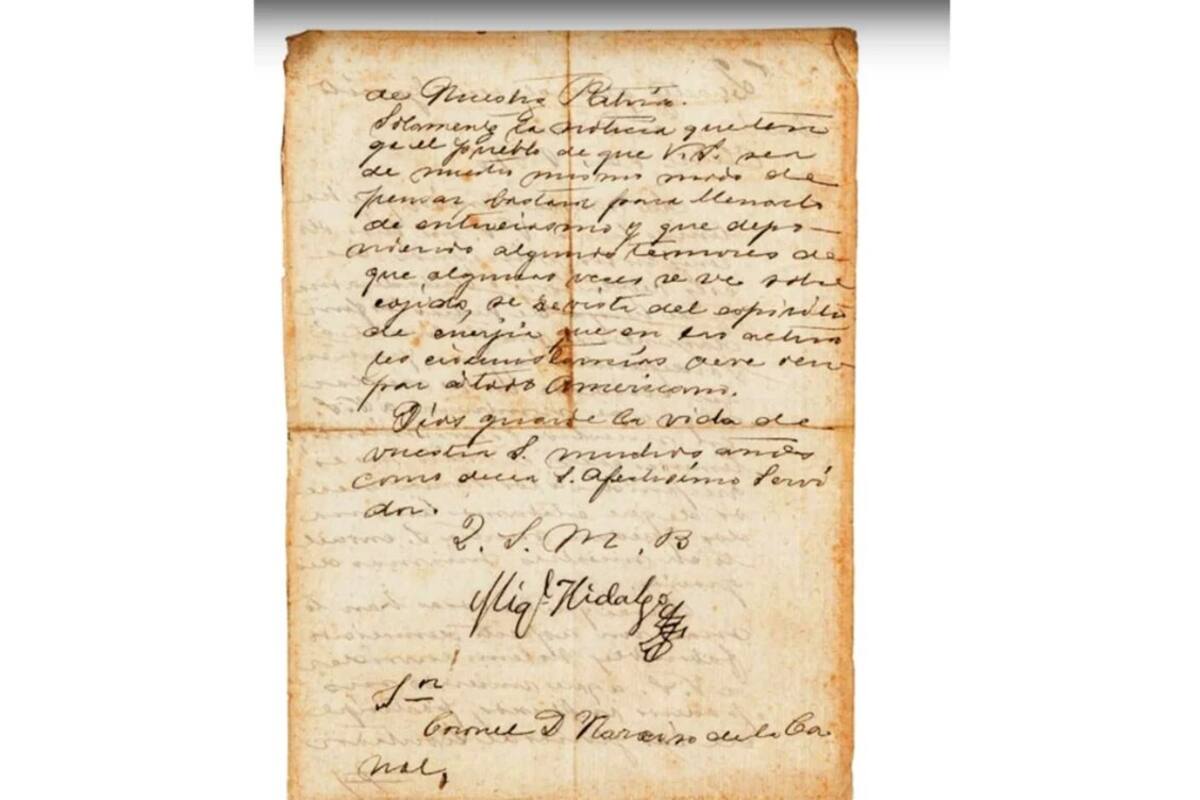 de Nuestra Patria.
Solamente la noticia que ten
ga el pueblo de que V.S. sea
de nuestro mismo modo de
pensar, bastara para llenarlo
de entuciasmo y que depo-
niendo algunos temores de
que algunas veces se ve sobre
cojido, se revista del espiritu
de energia que en las actua
les circunstancias deve ocu
par á todo Americano.
Dios guarde la vida de
vuestra S. muchos años
como decea S. Afectisimo Servi
dor.
Q. S. M. B
Migl. Hidalgo
Sn
Coronel D Narciso de la Ca
nal,